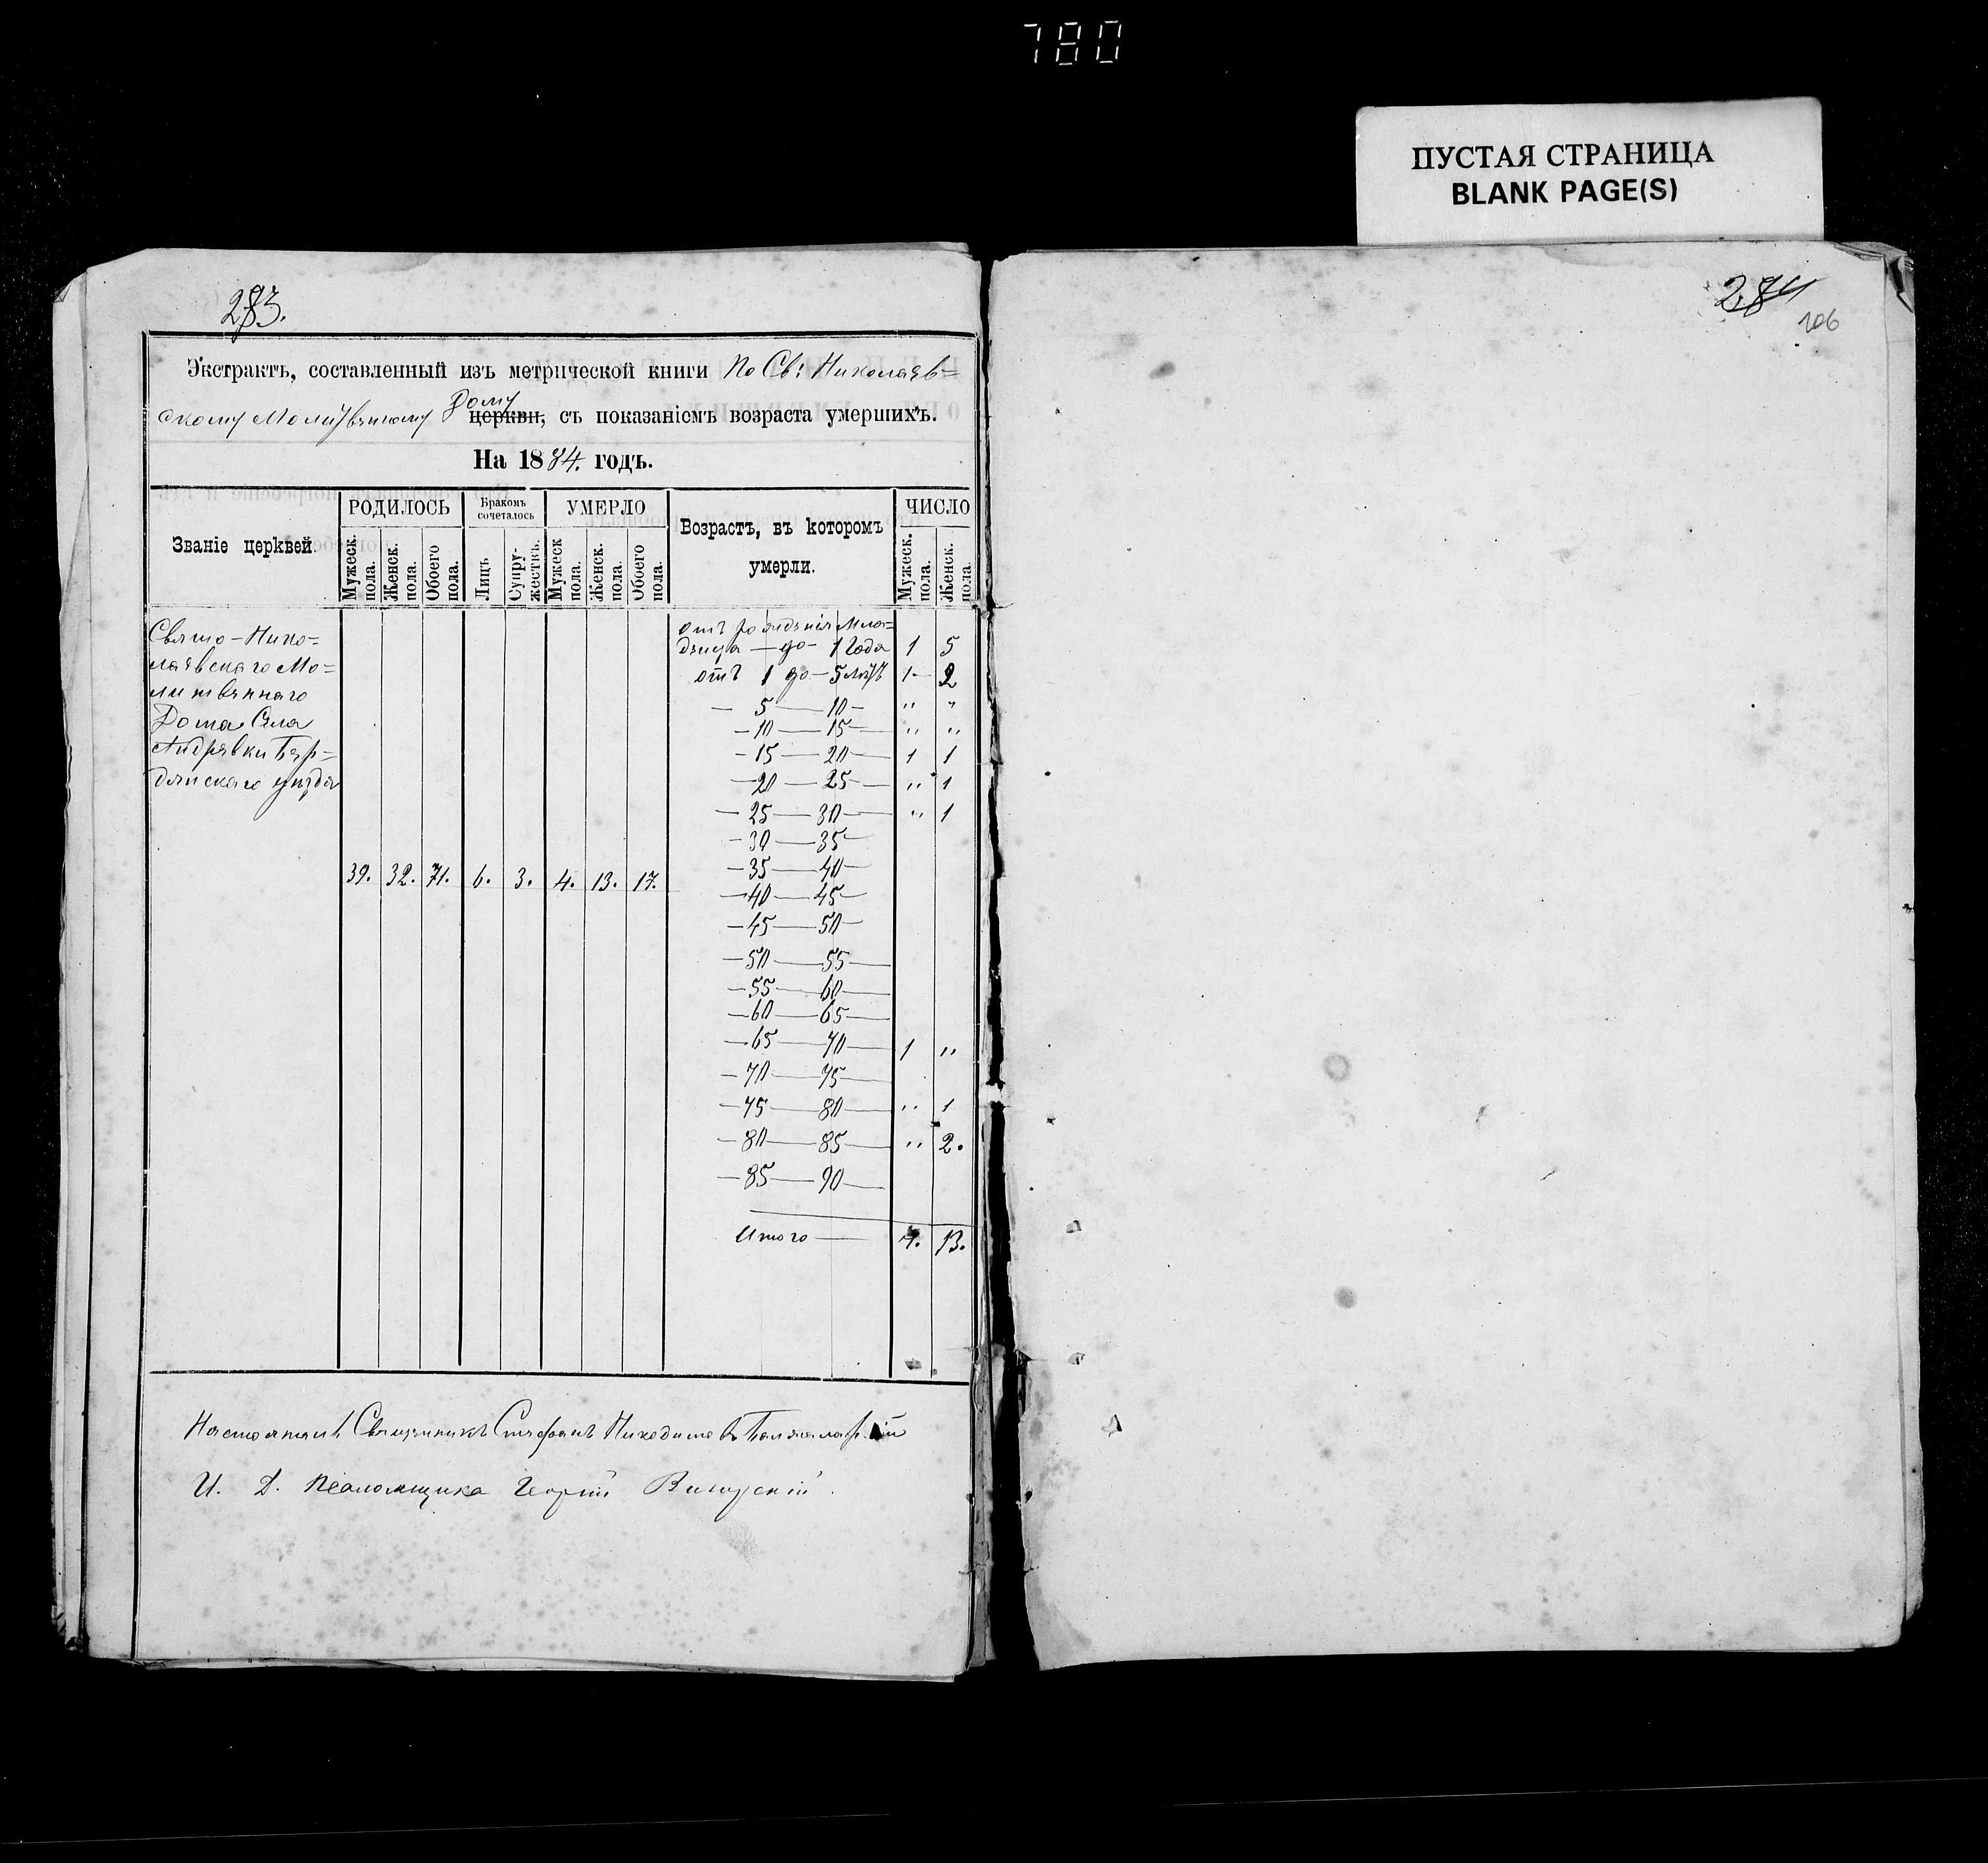 780
ПУСТАЯ СТРАНИЦА
BLANK PAGE(S)
283.
Экстрактъ, составленный изъ метрической книги По Св: Николаев=
скому Молитвенному Дому церкви, съ показаніемъ возраста умершихъ.
На 1884. годъ.
Званіе церквей.
РОДИЛОСЬ
Мужеск. пола.
Женск. пола.
Обоего пола.
Бракомъ сочеталось
Лицъ
Супружествъ.
УМЕРЛО
Мужеск пола.
Женск. пола.
Обоего пола.
Возрастъ, въ которомъ умерли.
ЧИСЛО
Мужеск. пола.
Женск. пола.
Свято-Нико=
лаевскаго Мо=
литвеннаго
Дома Села
Андревки Бер=
дянскаго уѣзда
39. 32. 71. 6. 3. 4. 13. 17.
отъ рожденія Мла=
денца — до — 1 Года 1 5
отъ 1 до — 5 лѣтъ 1 — 2
— 5 — 10 — " "
— 10 — 15 — " "
— 15 — 20 — 1 1
— 20 — 25 — " 1
— 25 — 30 — " 1
— 30 — 35 —
— 35 — 40 —
— 40 — 45 —
— 45 — 50 —
— 50 — 55 —
— 55 — 60 —
— 60 — 65 —
— 65 — 70 — 1 "
— 70 — 75 —
— 75 — 80 — " 1
— 80 — 85 — " 2.
— 85 — 90 —
Итого — 4. 13.
Настоятель Священникъ Стефанъ Никодимовъ
И. Д. Псаломщика Георгій
284
106